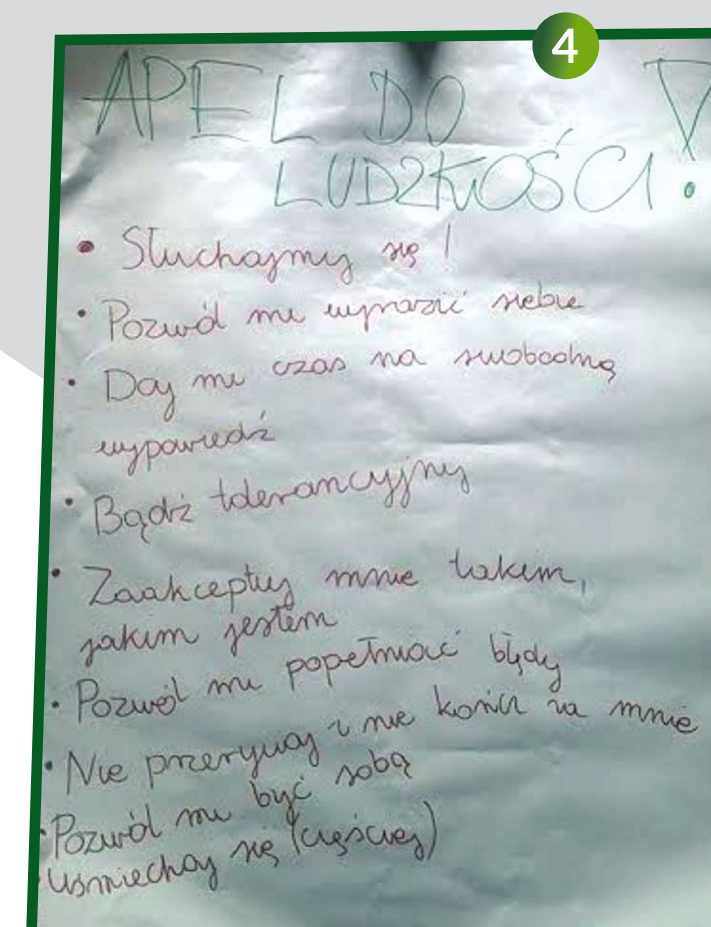 4
APEL DO
LUDZKOŚCI!
• Słuchajmy się!
• Pozwól mi wyrazić siebie
• Daj mi czas na swobodną
wypowiedź
• Bądź tolerancyjny
• Zaakceptuj mnie takim,
jakim jestem
• Pozwól mi popełniać błędy
• Nie przerywaj i nie kończ za mnie
• Pozwól mi być sobą
• Uśmiechaj się (częściej)